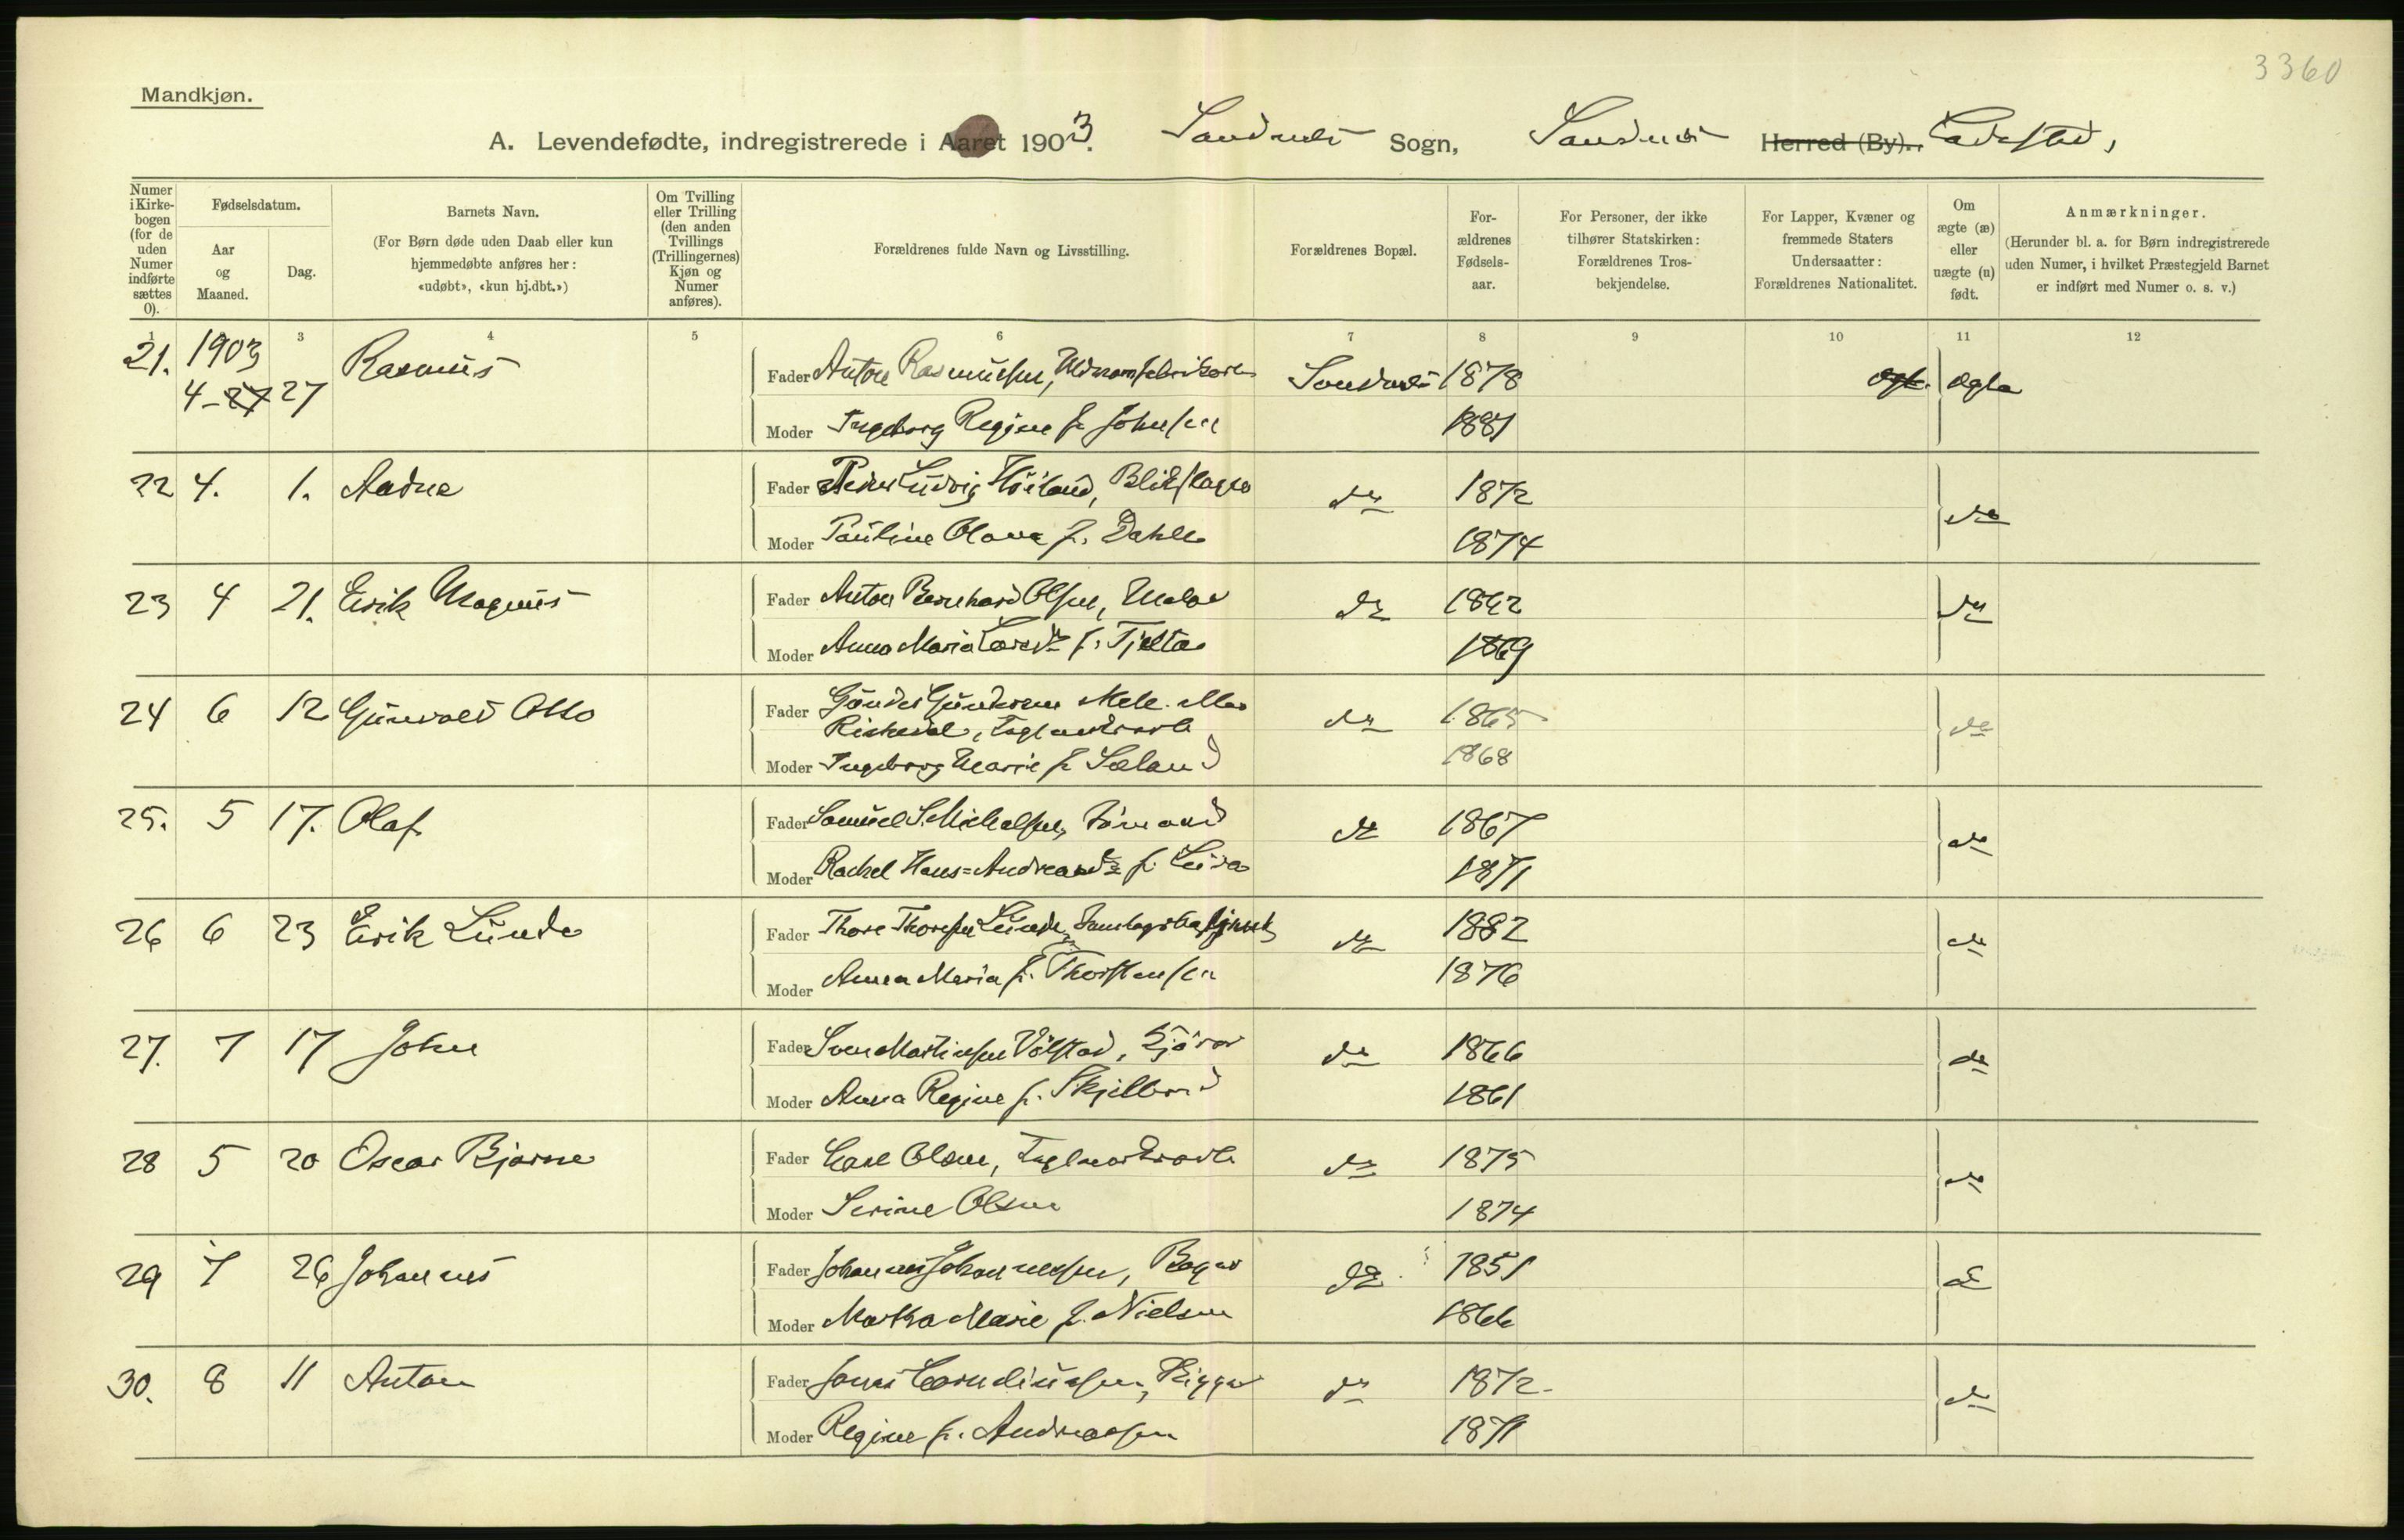 3360
Mandkjøn.
A. Levendefødte, indregistrerede i Aaret 1903. Sandnes Sogn, Sandnes Herred (By). Ladested,
Numer i Kirkebogen (for de uden Numer indførte sættes 0).
Fødselsdatum.
Aar og Maaned.
Dag.
Barnets Navn.
(For Børn døde uden Daab eller kun hjemmedøbte anføres her: «udøbt», «kun hj.dbt.»)
Om Tvilling eller Trilling (den anden Tvillings (Trillingernes) Kjøn og Numer anføres).
Forældrenes fulde Navn og Livsstilling.
Forældrenes Bopæl.
Forældrenes Fødselsaar.
For Personer, der ikke tilhører Statskirken: Forældrenes Trosbekjendelse.
For Lapper, Kvæner og fremmede Staters Undersaatter: Forældrenes Nationalitet.
Om ægte (æ) eller uægte (u) født.
Anmærkninger.
(Herunder bl. a. for Børn indregistrerede uden Numer, i hvilket Præstegjeld Barnet er indført med Numer o. s. v.)
1 3 4 5 6 7 8 9 10 11 12
21. 1903 4-27 27 Rasmus Fader Anton Rasmussen, Sandnes 1878 Ægte Ægte
Moder Ingeborg Regine f. Johnsen 1881
22 4. 1. Aadne Fader Peder Ludvig Höiland, Blikslager do 1872 do
Moder Pauline Olava f. Dahle 1874
23 4 21. Erik Magnus Fader Anton Bernhard Olsen, Maler do 1862 do
Moder Anna Maria Larsd. f. Tjelta 1869
24 6 12 Gunvald Otto Fader Gunder Gundersen
do 1865 do
Moder Ingeborg Marie f. Sæland 1868
25. 5 17. Olaf Fader Samuel S. Mikalsen, Sömand do 1867 do
Moder Rachel Hans=Andreasd. f. Leira 1871
26 6 23 Erik Lunde Fader Thore Thoresen Lunde, do 1882 do
Moder Anna Maria f. Thorstensen 1876
27. 7 17 John Fader Sven Martinsen Ölstad, do 1866 do
Moder Anna Regine f. Skjelbred 1861
28 5 20 Oscar Bjarne Fader Carl Olsen, do 1875 do
Moder Serine Olsen 1874
29 7 26 Johannes Fader Johannes Johannessen, Bager do 1851 do
Moder Martha Marie f. Nielsen 1866
30. 8 11 Anton Fader Jonas Corneliussen, Rigger do 1872 do
Moder Regine f. Andreassen 1871